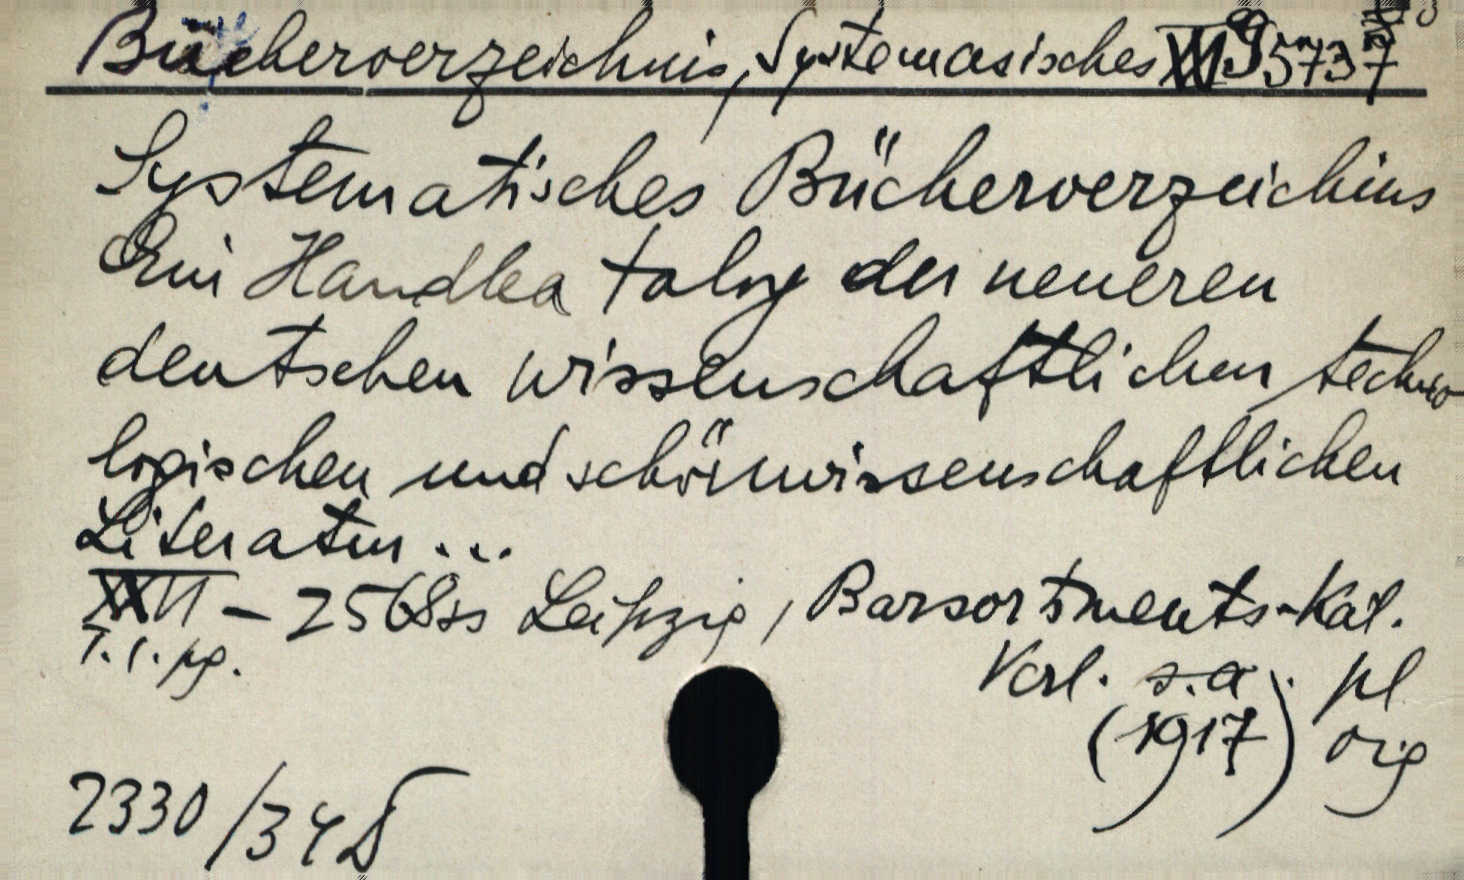 Bücherverzeichnis, Systemasisches
Systematisches Bücherverzeichins
Ein Handka talog der neueren
deutschen wissenschaftlichen techno
logischen und schönwissenschaftlichen
Literatur...
XXII - 2568 ss Leipzig, Barsortiments-Kat.
T.l. pg.
Verl. s.a. pl
(1917) orig
2330/34